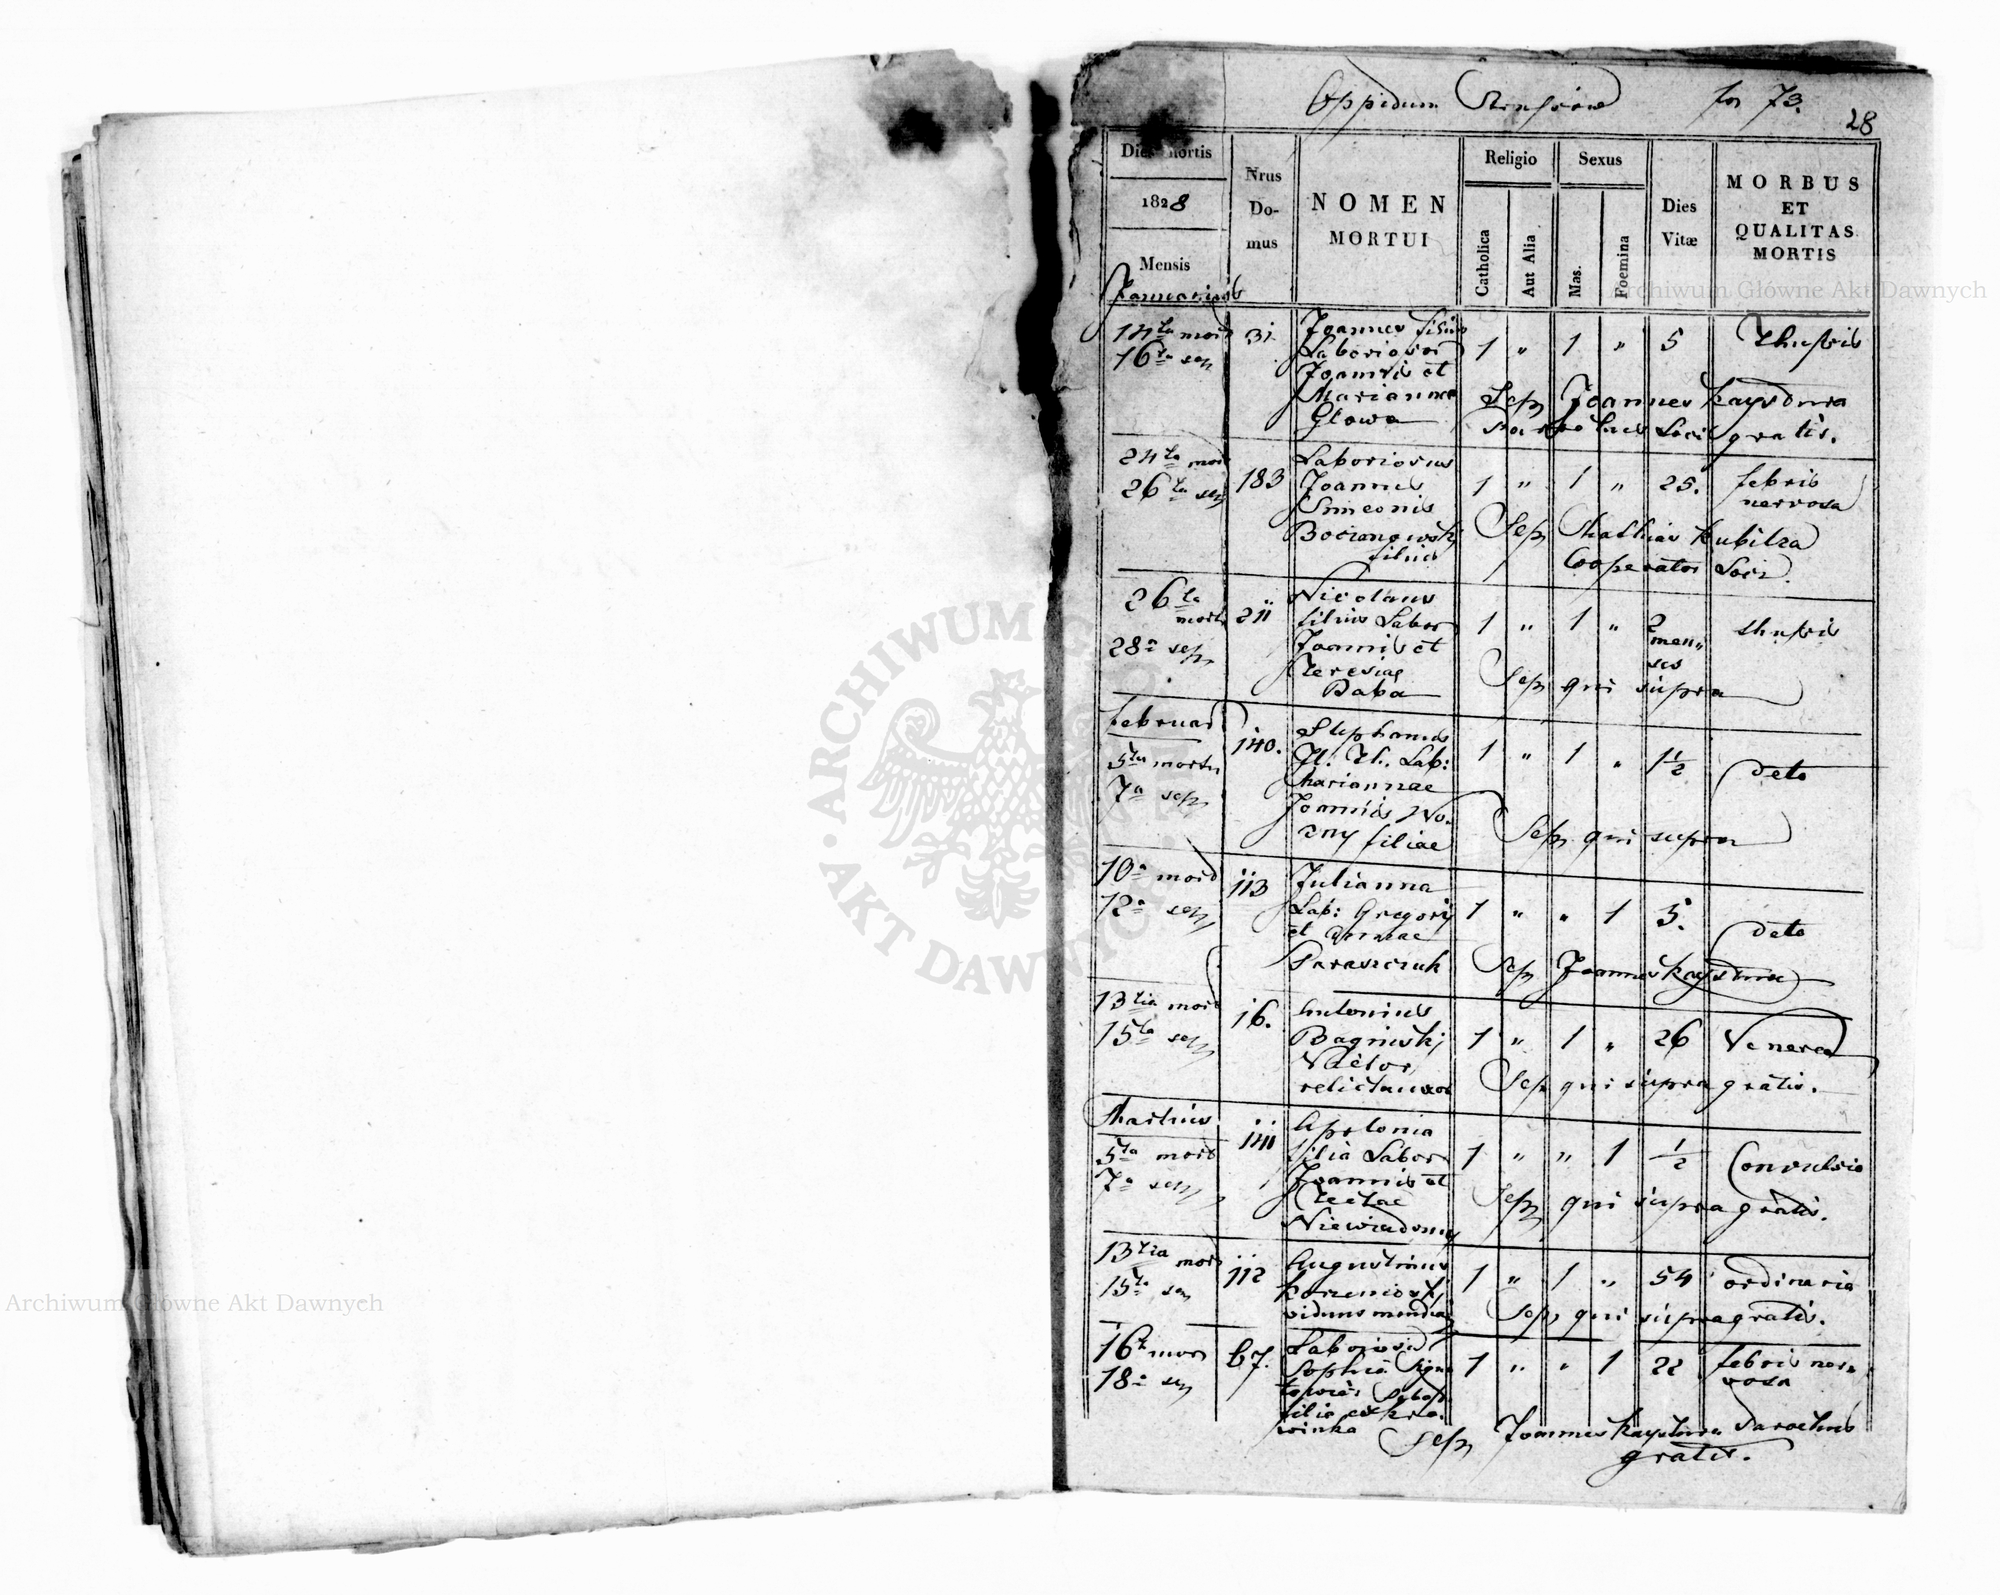 Oppidum
fol 73.
28
Dies Mortis
1828
Mensis
Januarius
Nrus
Do-
mus
NOMEN
MORTUI
Religio
Catholica
Aut Alia
Sexus
Mas.
Foemina
Dies
Vitæ
MORBUS
ET
QUALITAS
MORTIS
14ta mort
16ta sep
31
Joannes filius
Laboriosor
Joannis et
Mariannae
Glowa
1 " 1 " 5
Thussis
Sep Joannes Kaystura
Parochus Loci gratis.
24ta mort
26ta sep
183
Laboriosus
Joannes
Simeonis
Bocianowski
filius
1 " 1 " 25.
febris
nervosa
Sep Mathias Kubitza
Cooperator Loci
26ta
mort
28a sep
211
Nicolaus
filius Labor
Joannis et
Teresiae
Baba
1 " 1 " 2
men"
ses
thussis
Sep qui supra
Februar
5ta mort
7a sep
140.
Stephanus
Il. Th. Lab:
Mariannae
Joannis Wo-
zny filiae
1 " 1 " 1½
deto
Sep qui supra
10a mort
12a sep
113
Julianna
Lab: Gregorij
et
Paraszczuk
1 " " 1 5.
deto
Sep Joannes Kaystura
13tia mort
15ta sep
16.
Antonius
Baginski
relicta uxor
1 " 1 " 26
Venerea
Sep qui supra gratis.
Martius
5ta mort
7a sep
141
Apolonia
filia Labor
Joannis et
Teclae
Niewiadomy
1 " " 1 ½
Convulsio
Sep qui supra gratis.
13tia mort
15ta sep
112
Augustinus
Korzeniowski
viduus mendic
1 " 1 " 54
ordinaria
Sep qui supra gratis.
16ta mort
18a sep
67.
Laboriosa
Sophia
filia ex
1 " " 1 22
febris ner"
vosa
Sep Joannes Kaystura Parochus
gratis.
Archiwum Główne Akt Dawnych
Archiwum Główne Akt Dawnych
ARCHIWUM GŁÓWNE · AKT DAWNYCH ·